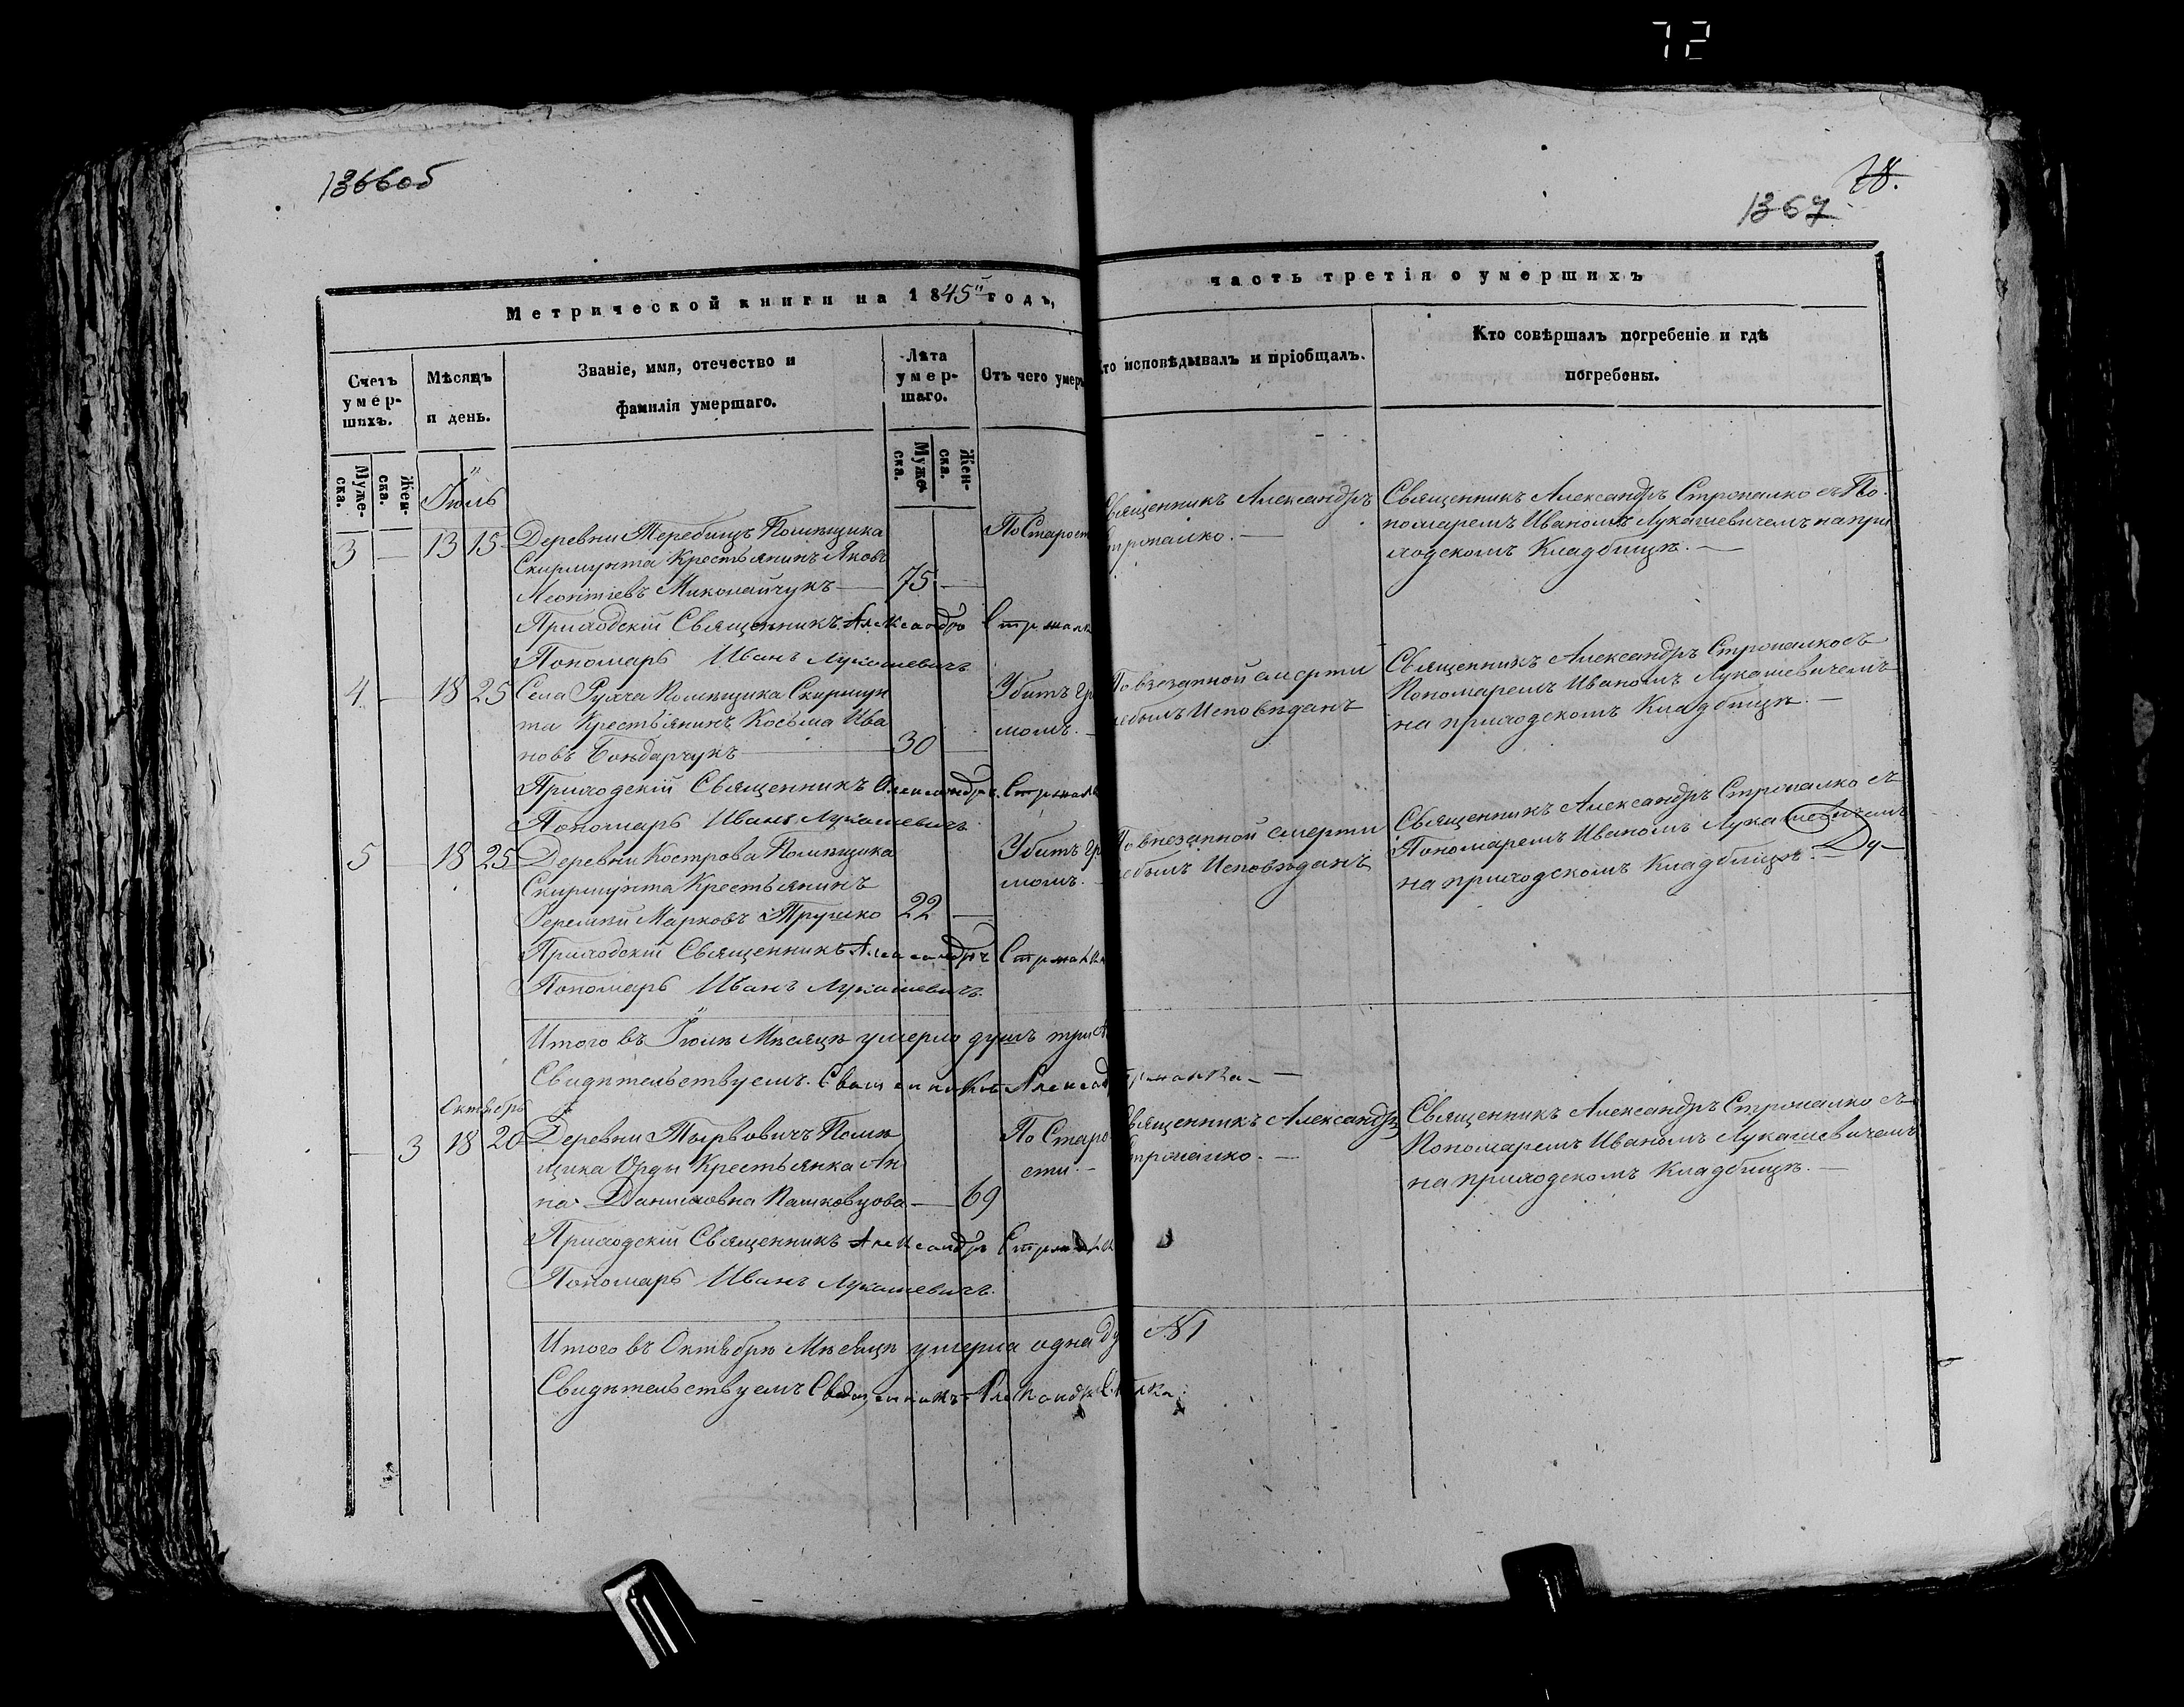 72
1366об
78.
1367
Метрической книги на 1845й годъ,
часть третія о умершихъ
Счетъ умер-шихъ.
Мѣсяцъ и день.
Званіе, имя, отечество и фамилія умершаго.
Лѣта умер-шаго.
Отъ чего умеръ
Кто исповѣдывалъ и пріобщалъ.
Кто совѣршалъ погребеніе и гдѣ погребены.
Муже-ска.
Жен-ска.
Муже-ска.
Жен-ска.
Іюль
3 — 13 15 Деревни Теребищъ Помѣщика
Скирмунта Крестьянинъ Яковъ
Леонтіевъ Миколайчукъ — 75 —
По Старост
Священникъ Александръ
Стропалко. —
Священникъ Александръ Стропалко съ По-
номаремъ Иваномъ Лукашевичемъ на при
ходскомъ Кладбищѣ. —
Приходскій Священникъ Александръ
Пономарь Иванъ Лукашевичъ
4 — 18 25 Села Рухча Помѣщика Скирмун
та Крестьянинъ Косьма Ива
новъ Бондарчукъ — 30 —
Убитъ гр
момъ. —
По внезапной смерти
небылъ Исповѣданъ
Священникъ Александръ Стропалко съ
Пономаремъ Иваномъ Лукашевичемъ
на приходскомъ Кладбищѣ. —
Приходскій Священникъ Александръ
Пономарь Иванъ Лукашевичъ
5 — 18 25 Деревни Кострова Помѣщика
Скирмунта Крестьянинъ
Іеремій Марковъ Трушко 22 —
Убитъ гр
момъ. —
По внезапной смерти
небылъ Исповѣданъ
Священникъ Александръ Стропалко съ
Пономаремъ Иваномъ Лукашевичемъ
на приходскомъ Кладбищѣ. —
Приходскій Священникъ Александръ
Пономарь Иванъ Лукашевичъ.
Итого въ Іюлѣ Мѣсяцѣ умерло душъ три
Свидѣтельствуемъ. Священникъ Александ
Октябрь
— 3 18 20 Деревни Тырвовичъ Помѣ
щика Орды Крестьянка Ан
на Даниловна Пашковцова — 69
По Старо
сти. —
Священникъ Александръ
Стропалко. —
Священникъ Александръ Стропалко съ
Пономаремъ Иваномъ Лукашевичемъ
на приходскомъ Кладбищѣ. —
Приходскій Священникъ Александръ
Пономарь Иванъ Лукашевичъ.
Итого въ Октябрѣ Мѣсяцѣ умерла одна ду №1
Свидѣтельствуемъ Священникъ Александръ